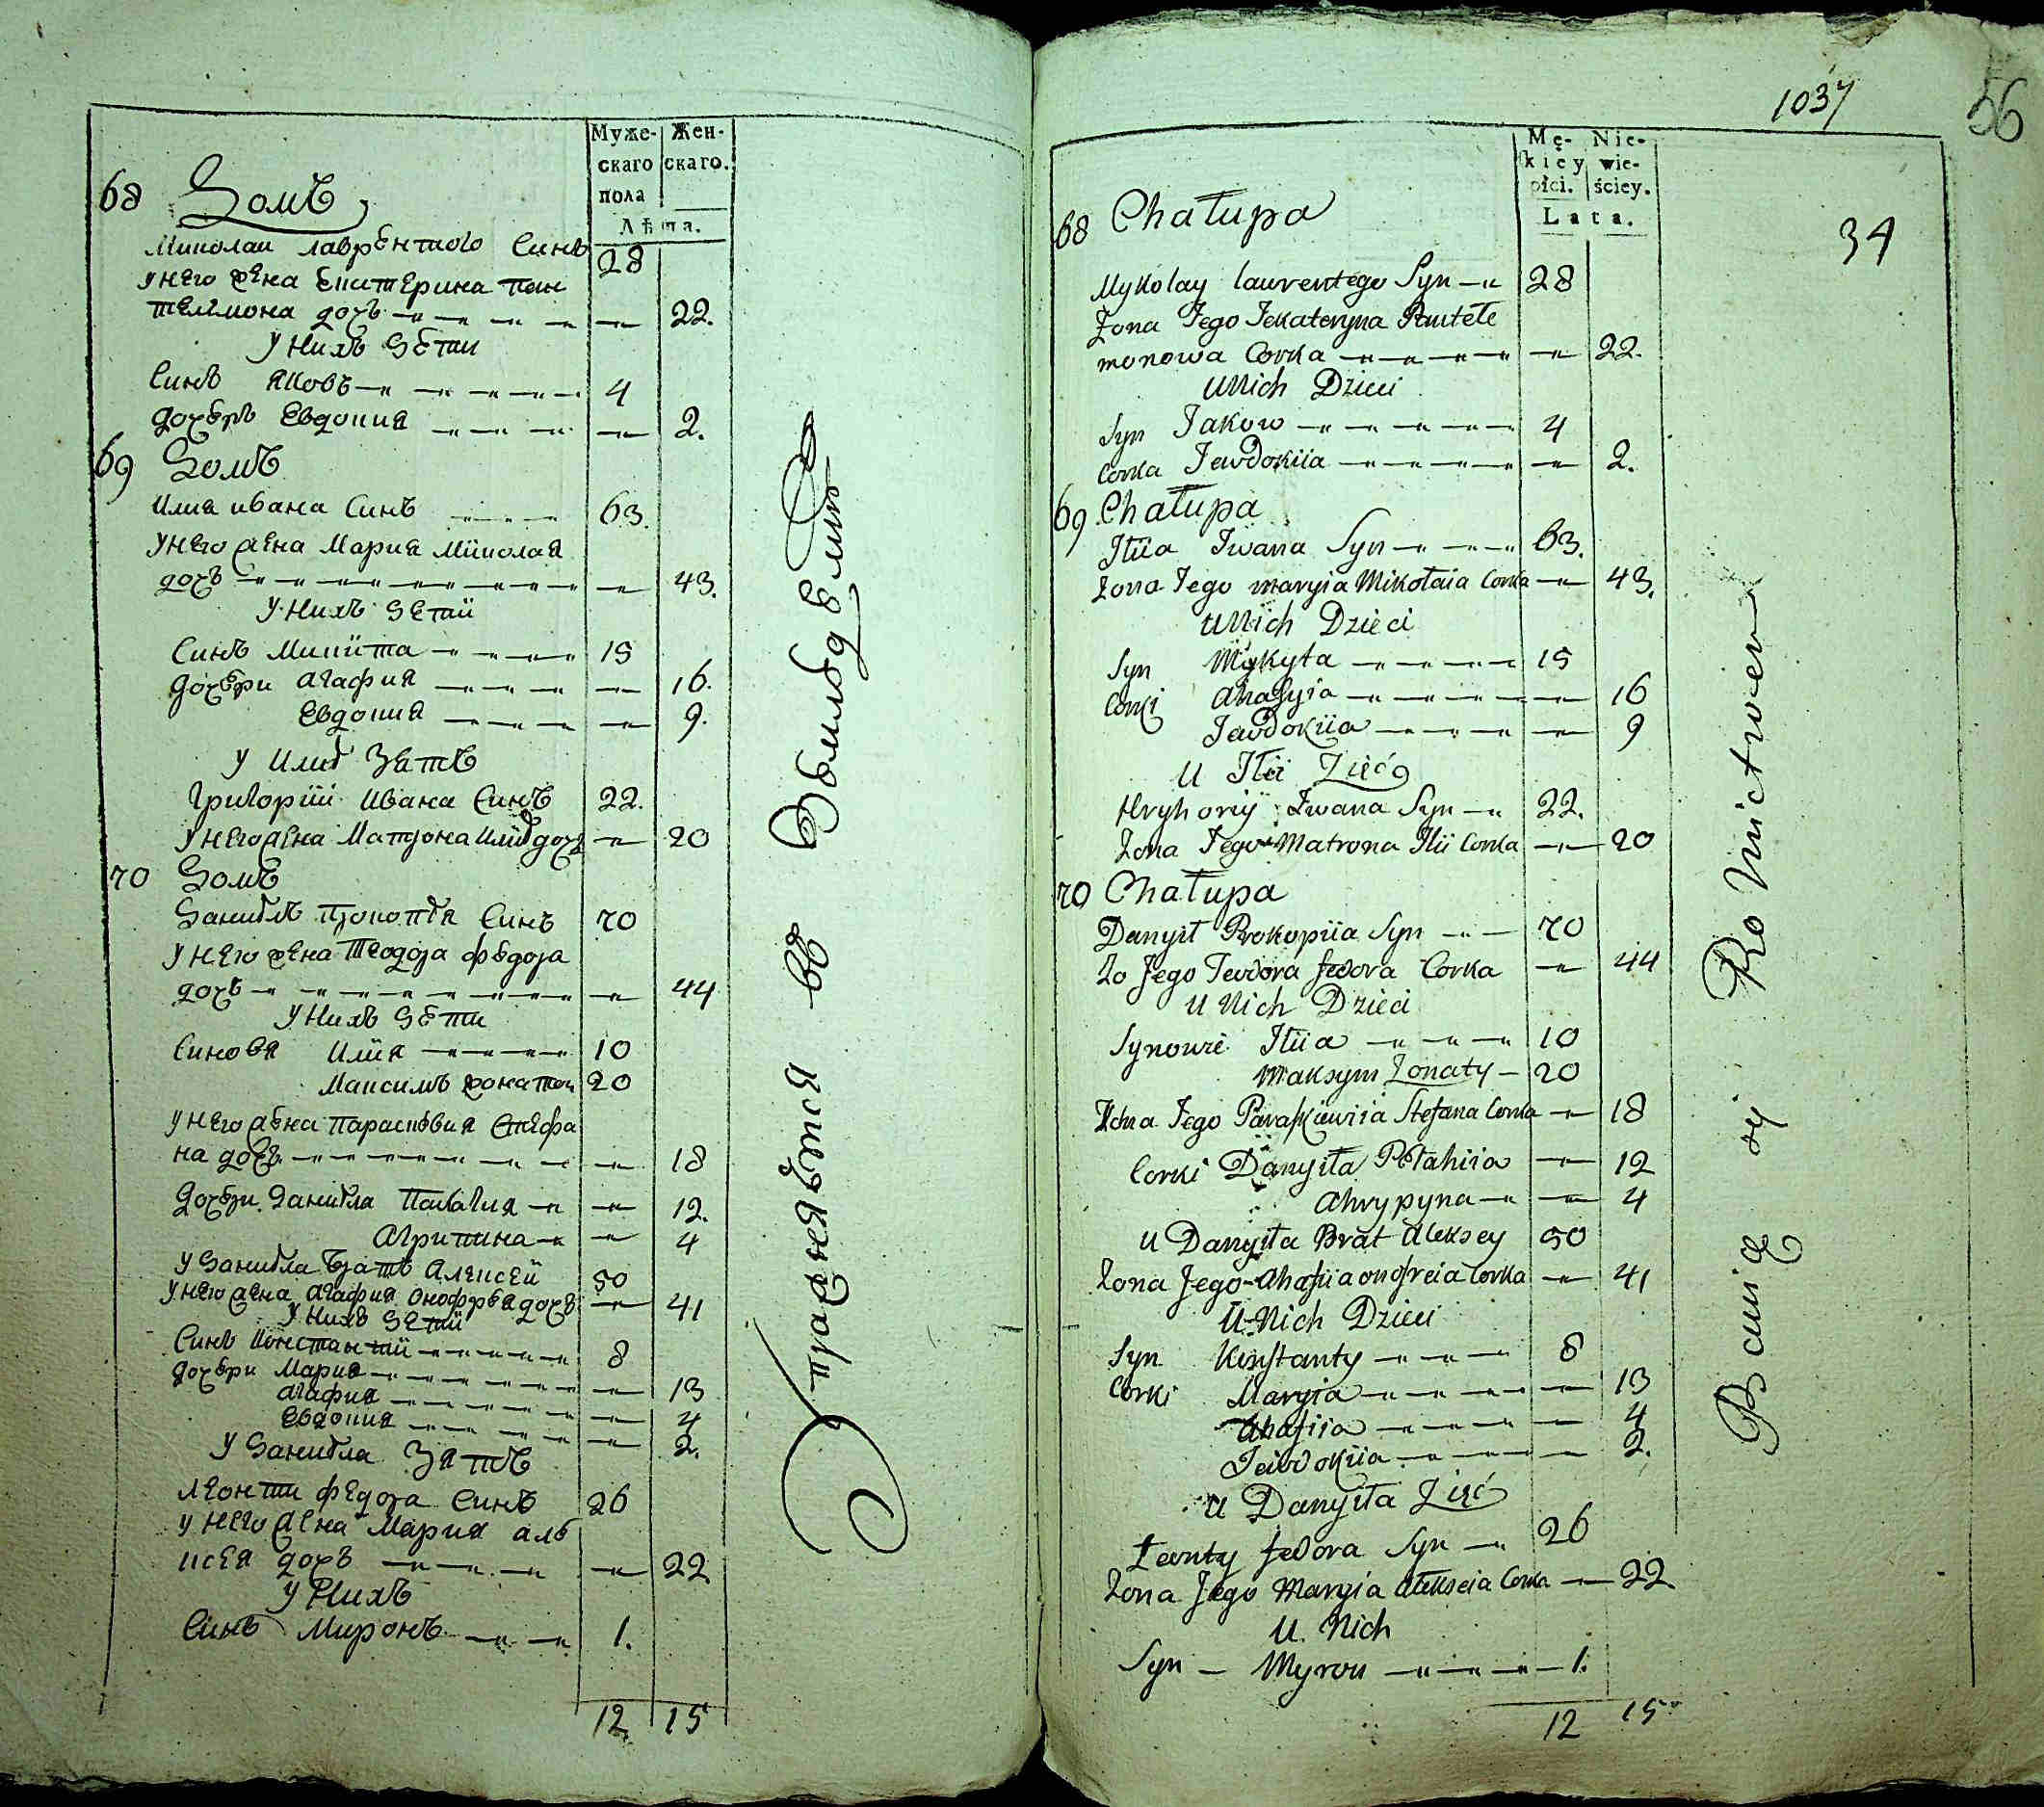 Муже-
скаго
пола
Жен-
скаго.
Лѣта.
68 Домъ
Миколаи лаврентиого Синъ 28
У него жена Екатерина пан
телимона дочъ — 22.
У Нихъ Дѣтыи
Синъ Яковъ 4
дочеръ Евдокия — 2.
69 Домъ
Илия ивана Синъ 63.
У него жена Мария Миколая
дочъ — 43.
У Нихъ Детии
Синъ Микита 15
Дочери Агафия — 16.
Евдокия — 9.
У Илиѣ Зять
Григорий Ивана Синъ 22.
У него жена Матрона Илиѣ дочъ — 20
70 Домъ
Даниилъ Прокопѣя Синъ 70
У него жена Теодора федора
дочъ — 44
У Нихъ Дети
Синовя Илия 10
Максимъ жонатыи 20
У него жена Парасковия Стефа
на дочъ — 18
Дочери Даниила Палагия — 12.
Агрипина — 4
У Даниила братъ Алексей 50
У него жена Агафия Онофрѣя дочъ — 41
У Нихъ Детии
Синъ Констанътий 8
дочери Мария — 13
Агафия — 4
Евдокия — 2.
У Даниила Зять
Леонти федора Синъ 26
У него жена Мария але
ксея дочъ — 22
У Нихъ
Синъ Миронъ 1.
12 15
Упражняѣтся въ
1037
56
34
Mę-
kiey
płci.
Nie-
wie-
ściey.
Lata.
68 Chałupa
Mykolay laurentego Syn 28
Zona Jego Jekateryna Pantełe
monowa Corka — 22.
U Nich Dzieci
Syn Jakow 4
Corka Jewdokiia — 2.
69 Chałupa
Iliia Iwana Syn 63.
Zona Jego maryia Mikołaia Corka — 43.
U Nich Dzieci
Syn Mykyta 15
Corki Ahafyia — 16
Jewdokiia — 9
U Ilii Zięć
Hryhoriy Iwana Syn 22.
Zona Jego Matrona Ilii Corka — 20
70 Chałupa
Danyił Prokopiia Syn 70
Zo Jego Teodora fedora Corka — 44
U Nich Dzieci
Synowie Iliia 10
Maksym Zonaty 20
Zona Jego Paraskiewiia Stefana Corka — 18
Corki Danyiła Pełahiia — 12
Ahrypyna — 4
U Danyiła Brat Aleksey 50
Zona Jego Ahafiia onofreia Corka — 41
U Nich Dzieci
Syn Konstanty 8
Corki Maryia — 13
Ahafiia — 4
Jewdokiia — 2.
U Danyiła Zięć
Leonty fedora Syn 26
Zona Jego Maryia Alekseia Corka — 22.
U Nich
Syn — Myron 1.
12 15
Bawią się Rolnictwem